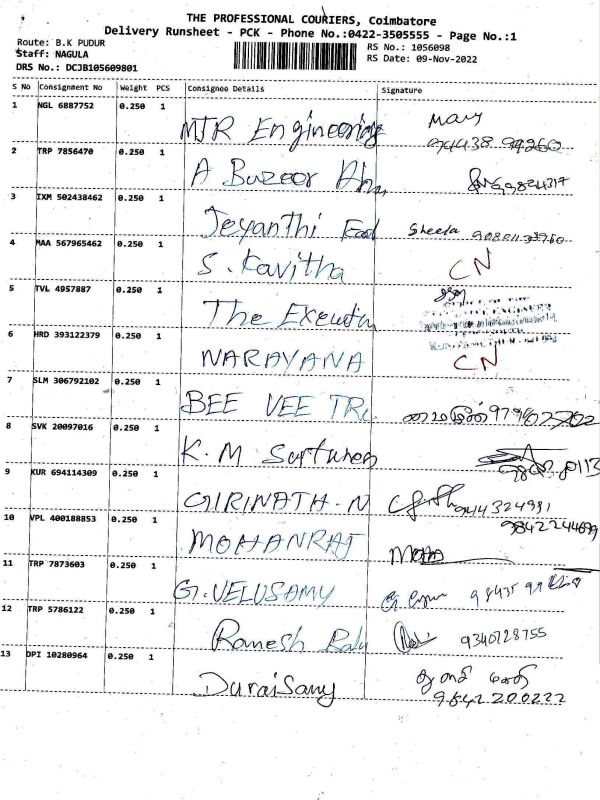 THE PROFESSIONAL COURIERS, Coimbatore
Delivery Runsheet - PCK - Phone No.:0422-3505555 - Page No.:1
Route: B.K PUDUR
RS No.: 1056098
Staff: NAGULA
RS Date: 09-Nov-2022
DRS No.: DCJB105609801
S No Consignment No Weight PCS Consignee Details Signature
1 NGL 6887752 0.250 1 MJR Engineering Mary
94438 94260
2 TRP 7856470 0.250 1 A Buzeor
3 IXM 502438462 0.250 1 Jeyanthi Sheela
4 MAA 567965462 0.250 1 S. Kavitha CN
5 TVL 4957887 0.250 1 The
6 HRD 393122379 0.250 1 NARAYANA CN
7 SLM 306792102 0.250 1 BEE VEE
8 SVK 20097016 0.250 1 K.M
9 KUR 694114309 0.250 1 GIRINATH.N 944324991
10 VPL 400188853 0.250 1 MOHANRAJ 9842244699
11 TRP 7873603 0.250 1 G.VELUSAMY
12 TRP 5786122 0.250 1 Ramesh Balu 9340728755
13 DPI 10280964 0.250 1 DuraiSamy
9842200222